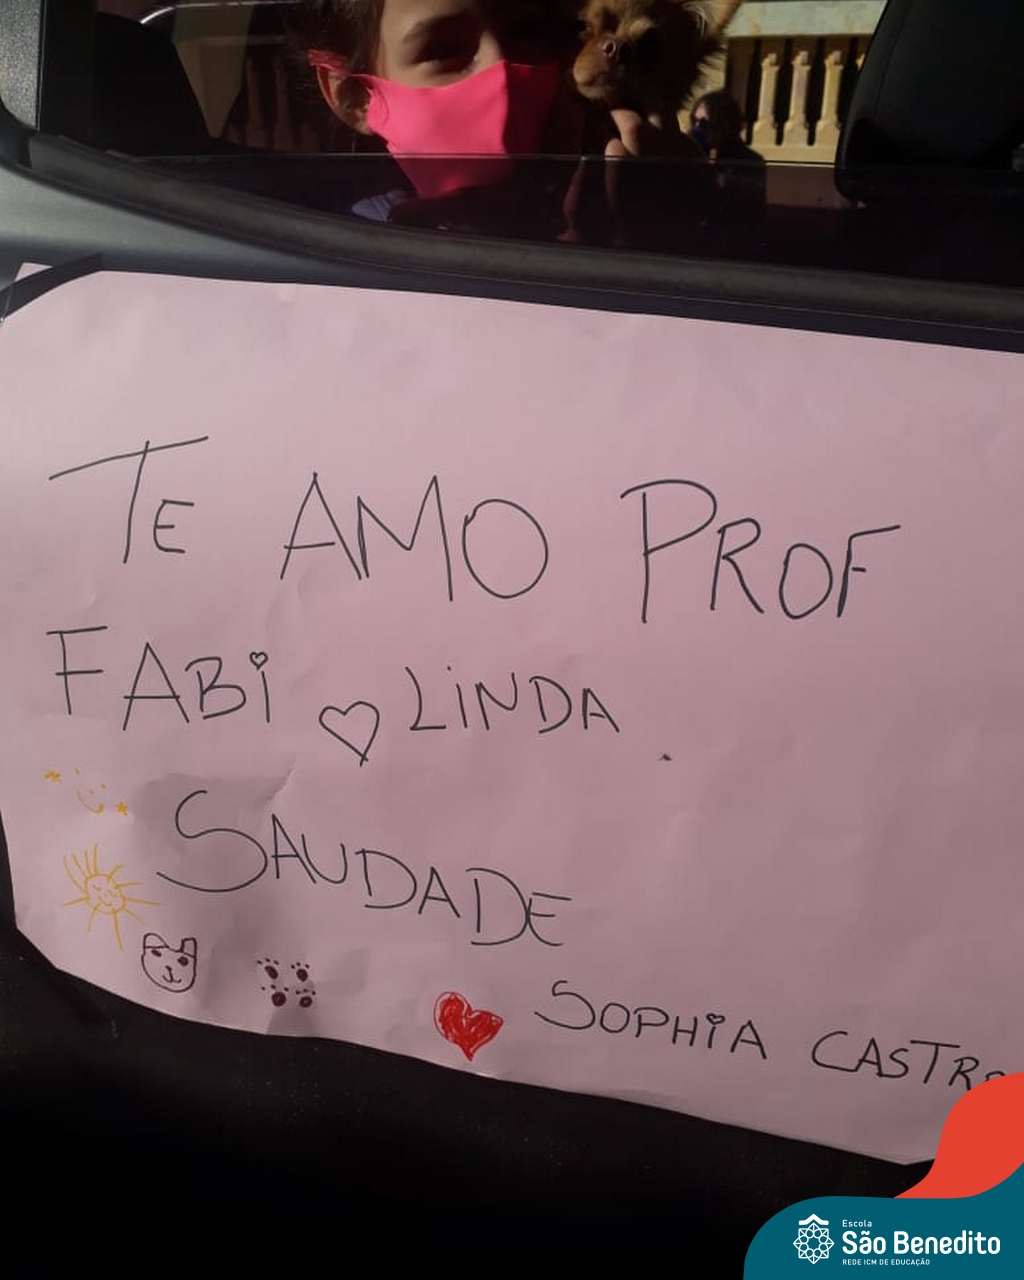 TE AMO PROF
FABI LINDA
SAUDADE
SOPHIA CASTRO
Escola
São Benedito
REDE ICM DE EDUCAÇÃO